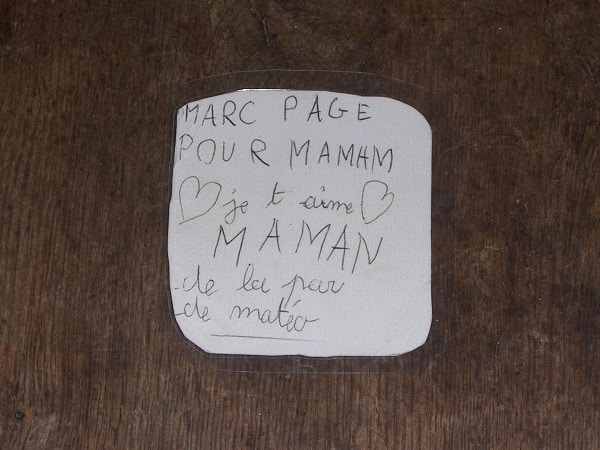 MARC PAGE
POUR MAMAM
je t aime
MAMAN
de la par
de matéo